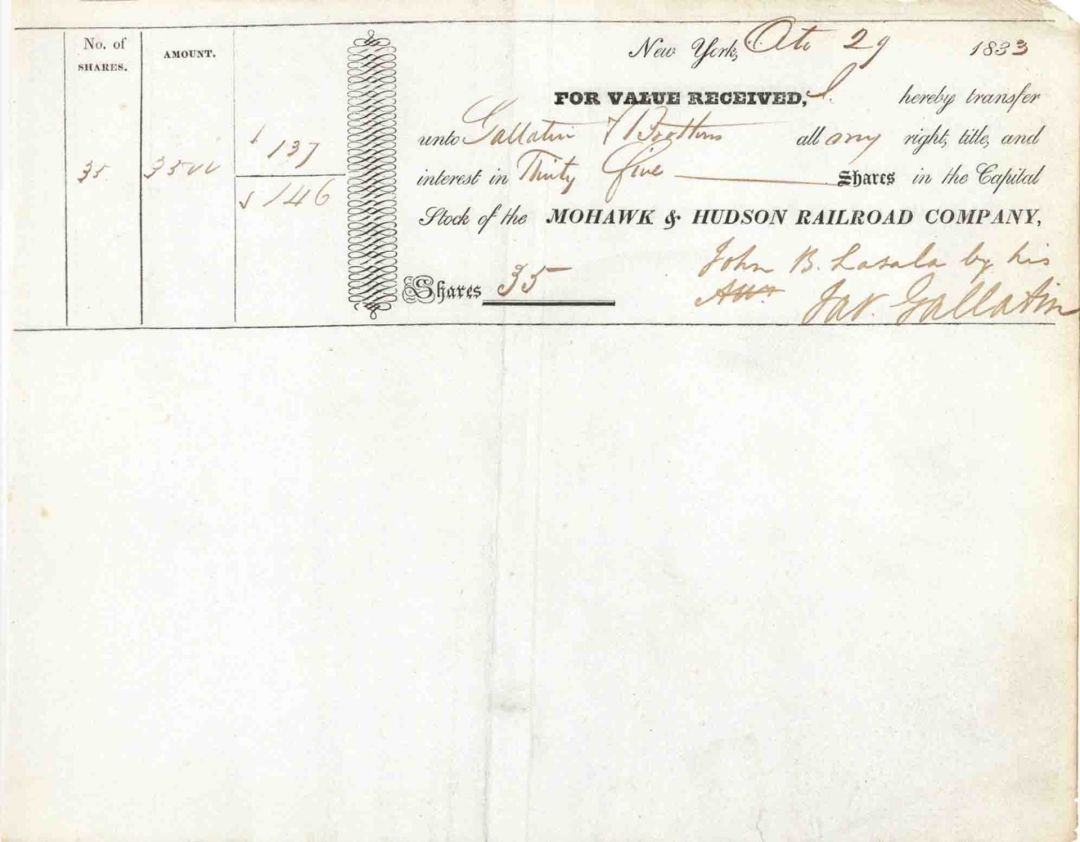 No. of
SHARES.
AMOUNT.
35
3500
137
146
New York, Octo 29 1833
FOR VALUE RECEIVED, I hereby transfer
unto Gallatin & Brothers all my right, title, and
interest in Thirty five Shares in the Capital
Stock of the MOHAWK & HUDSON RAILROAD COMPANY,
Shares 35
John B. Lasala by his
Atty Jas. Gallatin